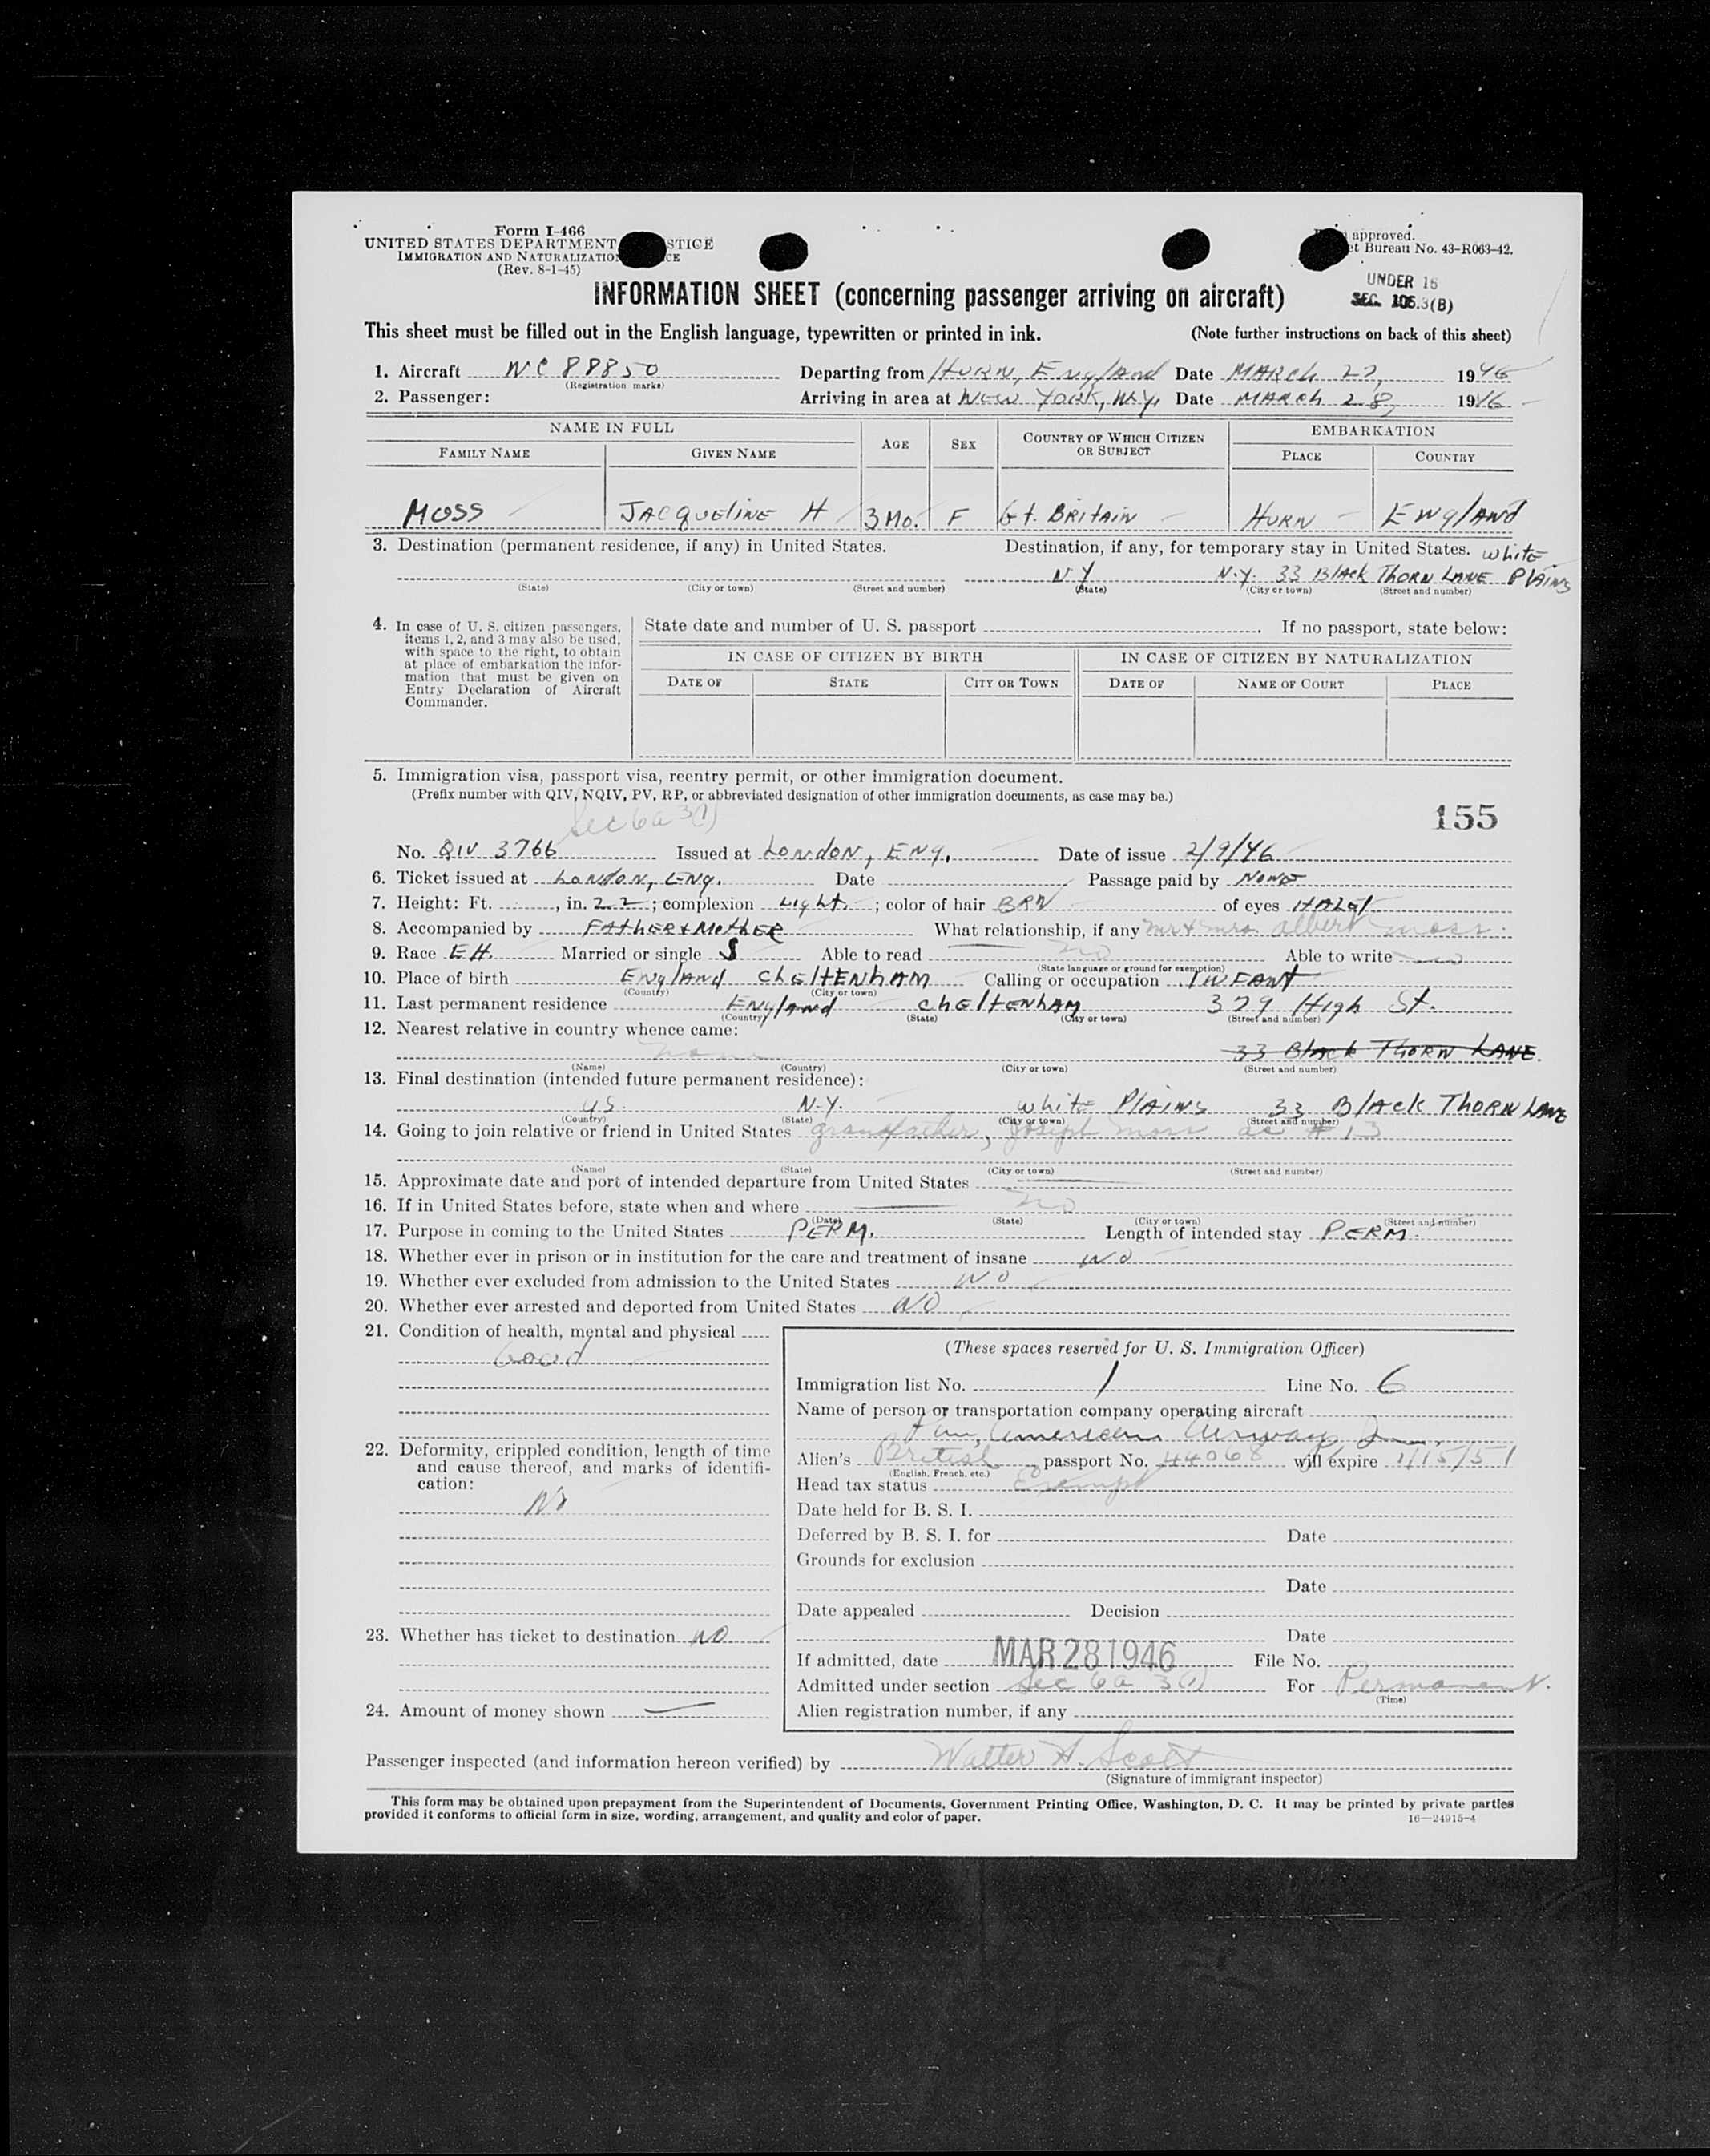 Form I-466
UNITED STATES DEPARTMENT STICE
IMMIGRATION AND NATURALIZATIO CE
(Rev. 8-1-45)
approved.
et Bureau No. 43-R063-42.
UNDER 16
SEC. 105.3(B)
INFORMATION SHEET (concerning passenger arriving on aircraft)
This sheet must be filled out in the English language, typewritten or printed in ink. (Note further instructions on back of this sheet)
1. Aircraft NC 88850 Departing from HURN, England Date MARCH 27, 1946
(Registration marks)
2. Passenger: Arriving in area at New York, N.Y. Date MARCH 28, 1946
NAME IN FULL AGE SEX COUNTRY OF WHICH CITIZEN OR SUBJECT EMBARKATION
FAMILY NAME GIVEN NAME PLACE COUNTRY
MOSS JACQUELINE H 3 MO. F Gt. BRITAIN HURN ENGLAND
3. Destination (permanent residence, if any) in United States. Destination, if any, for temporary stay in United States. White
NY N.Y. 33 Black Thorn LANE Plains
(State) (City or town) (Street and number) (State) (City or town) (Street and number)
4. In case of U. S. citizen passengers, items 1, 2, and 3 may also be used, with space to the right, to obtain at place of embarkation the information that must be given on Entry Declaration of Aircraft Commander.
State date and number of U. S. passport If no passport, state below:
IN CASE OF CITIZEN BY BIRTH IN CASE OF CITIZEN BY NATURALIZATION
DATE OF STATE CITY OR TOWN DATE OF NAME OF COURT PLACE
5. Immigration visa, passport visa, reentry permit, or other immigration document.
(Prefix number with QIV, NQIV, PV, RP, or abbreviated designation of other immigration documents, as case may be.)
Sec 6a 3(1)
155
No. QIV 3766 Issued at London, Eng. Date of issue 2/9/46
6. Ticket issued at London, Eng. Date Passage paid by None
7. Height: Ft. , in. 22 ; complexion Light ; color of hair BRN of eyes HAZEL
8. Accompanied by FATHER & MOTHER What relationship, if any Mr & Mrs. Albert Moss
9. Race EH. Married or single S Able to read no Able to write no
(State language or ground for exemption)
10. Place of birth England Cheltenham Calling or occupation INFANT
(Country) (City or town)
11. Last permanent residence England Cheltenham 329 High St.
(Country) (State) (City or town) (Street and number)
12. Nearest relative in country whence came:
none 33 Black Thorn LANE.
(Name) (Country) (City or town) (Street and number)
13. Final destination (intended future permanent residence):
US. N.Y. White Plains 33 Black Thorn LANE
(Country) (State) (City or town) (Street and number)
14. Going to join relative or friend in United States grandfather, Joseph Moss as # 13
(Name) (State) (City or town) (Street and number)
15. Approximate date and port of intended departure from United States
16. If in United States before, state when and where no
(Date) (State) (City or town) (Street and number)
17. Purpose in coming to the United States PERM. Length of intended stay PERM.
18. Whether ever in prison or in institution for the care and treatment of insane NO
19. Whether ever excluded from admission to the United States NO
20. Whether ever arrested and deported from United States NO
21. Condition of health, mental and physical
Good
22. Deformity, crippled condition, length of time and cause thereof, and marks of identification:
No
23. Whether has ticket to destination NO
24. Amount of money shown
(These spaces reserved for U. S. Immigration Officer)
Immigration list No. 1 Line No. 6
Name of person or transportation company operating aircraft
Pan American Airways
Alien's British passport No. 44068 will expire 1/15/51
(English, French, etc.)
Head tax status Exempt
Date held for B. S. I.
Deferred by B. S. I. for Date
Grounds for exclusion
Date
Date appealed Decision
Date
If admitted, date MAR 28 1946 File No.
Admitted under section Sec 6a 3(1) For Permanent.
(Time)
Alien registration number, if any
Passenger inspected (and information hereon verified) by Walter A. Scott
(Signature of immigrant inspector)
This form may be obtained upon prepayment from the Superintendent of Documents, Government Printing Office, Washington, D. C. It may be printed by private parties
provided it conforms to official form in size, wording, arrangement, and quality and color of paper. 16—24915-4